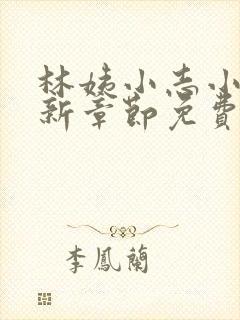 林姨小志小
新章節免費
李鳳蘭